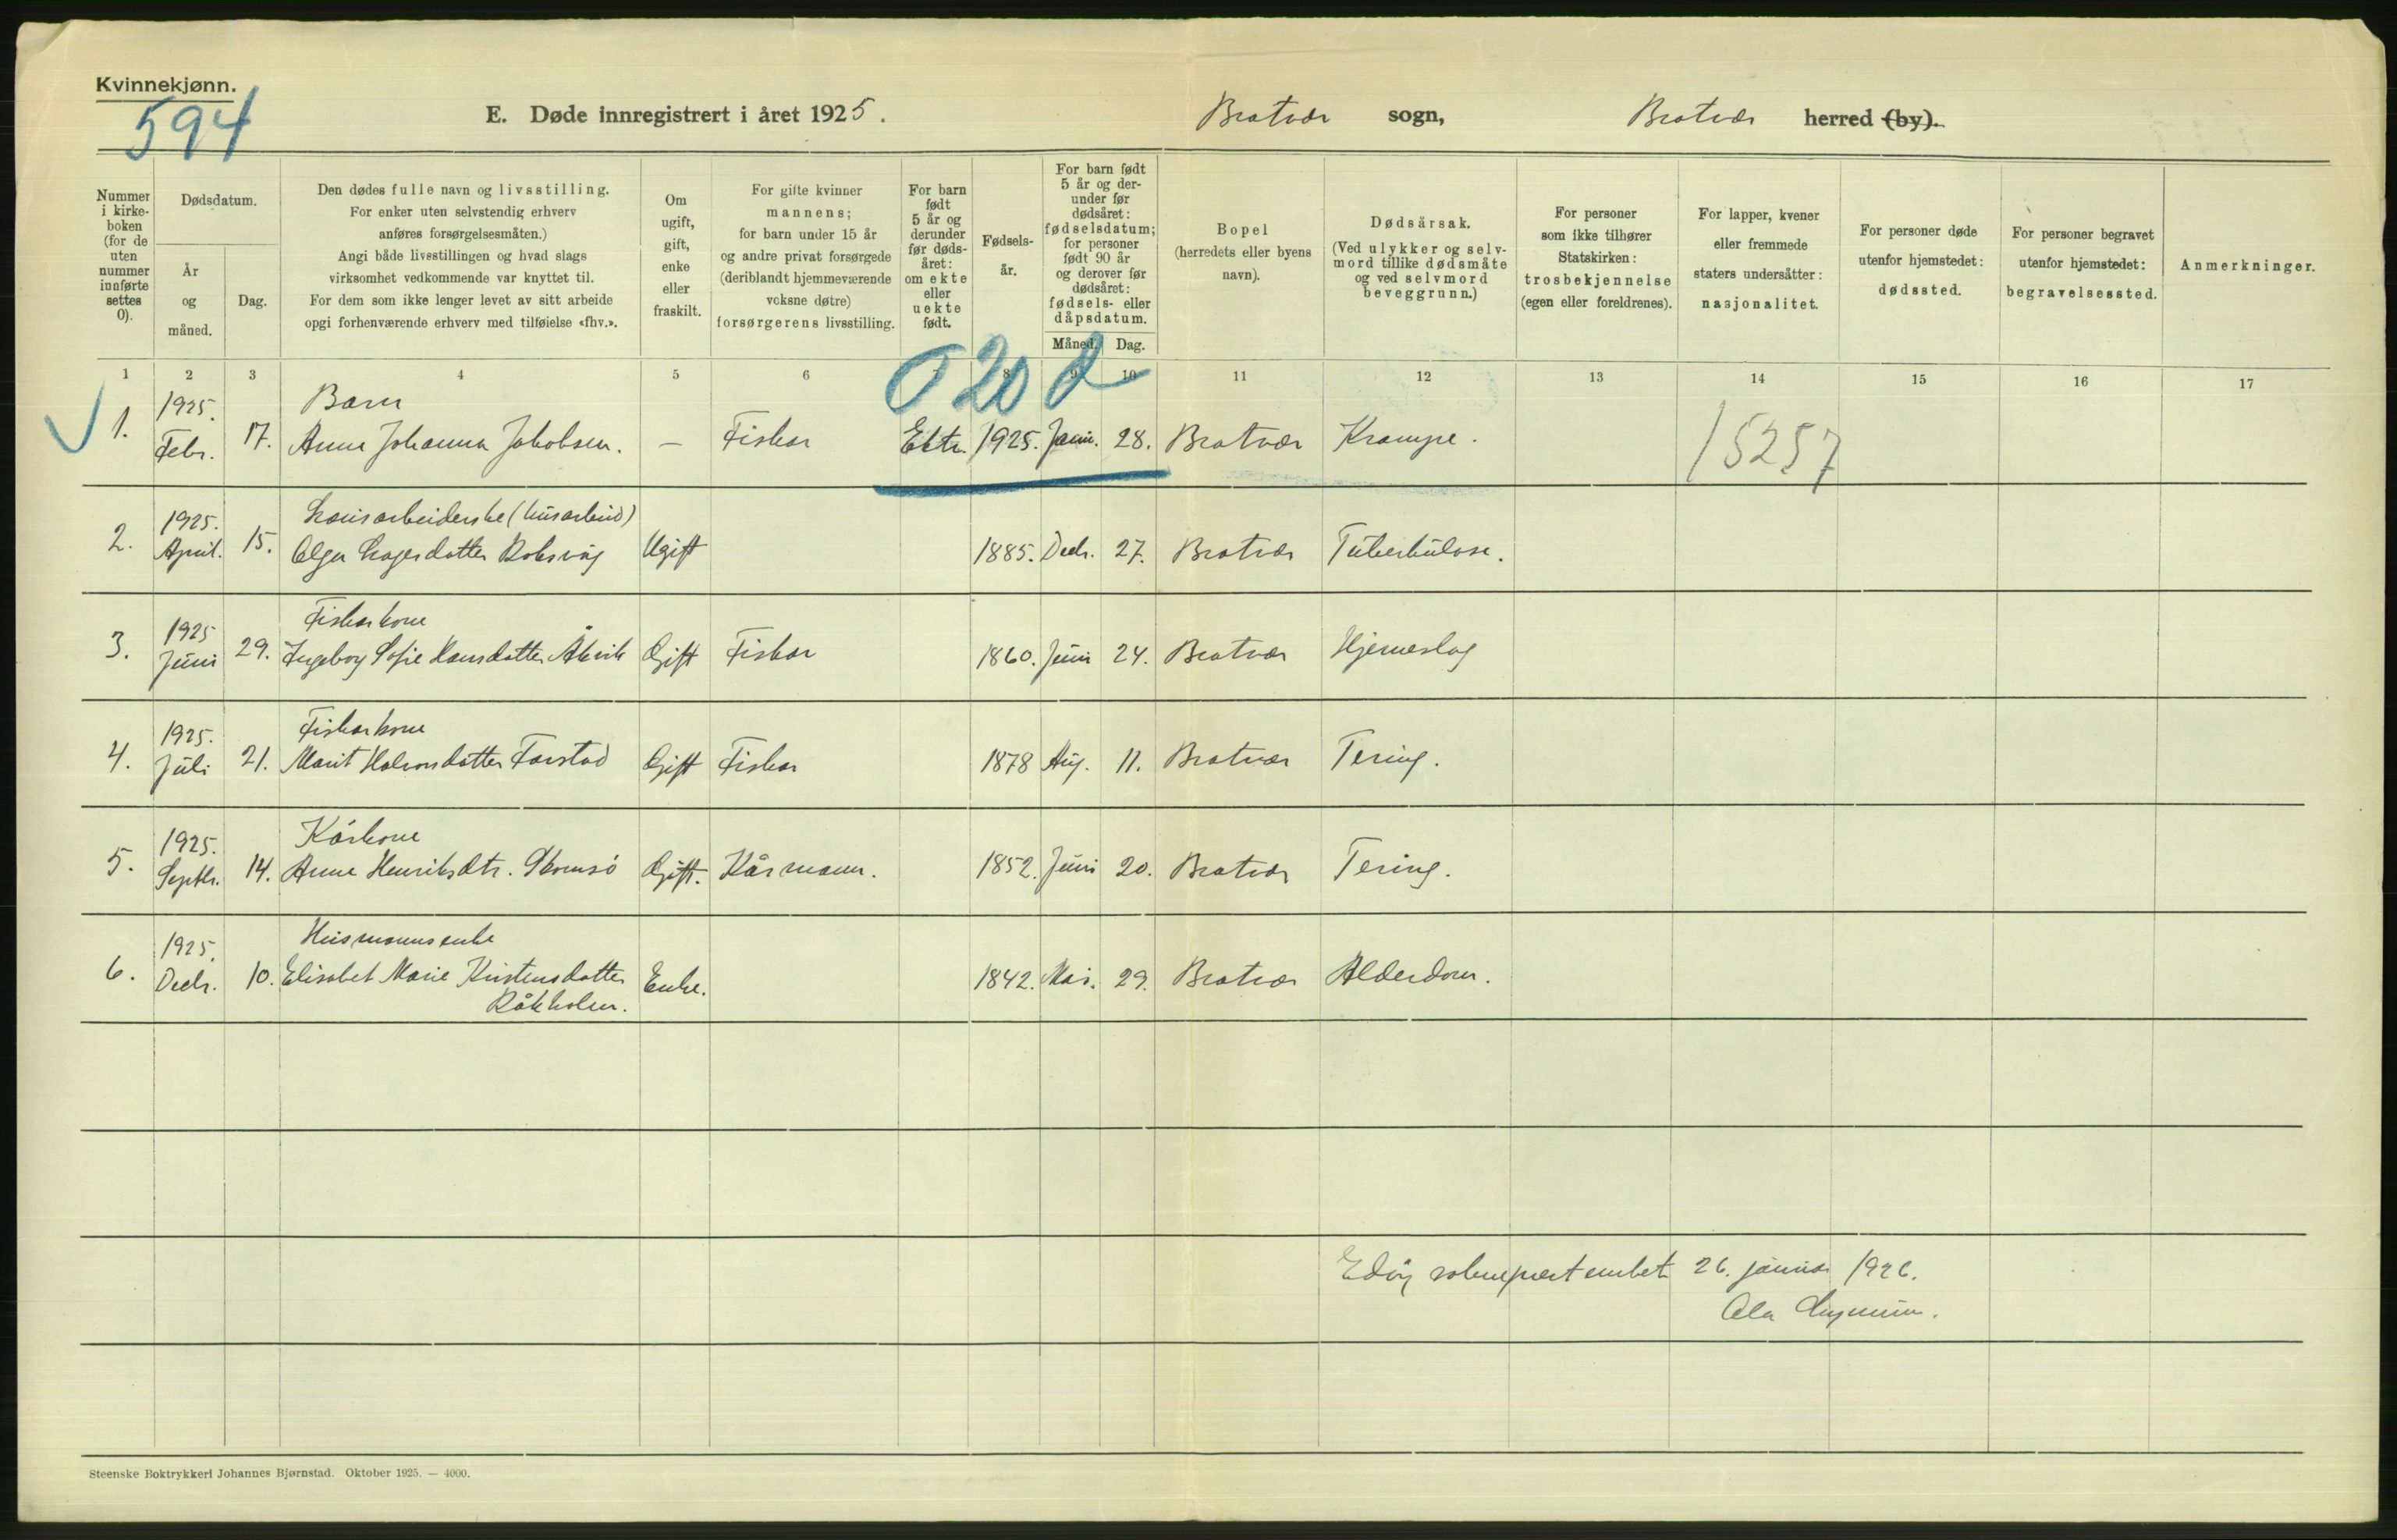 Kvinnekjønn.
594
E. Døde innregistrert i året 1925. Bratvær sogn, Bratvær herred (by).
Nummer i kirke-boken (for de uten nummer innførte settes 0).
Dødsdatum.
År og måned.
Dag.
Den dødes fulle navn og livsstilling.
For enker uten selvstendig erhverv
anføres forsørgelsesmåten.)
Angi både livsstillingen og hvad slags
virksomhet vedkommende var knyttet til.
For dem som ikke lenger levet av sitt arbeide
opgi forhenværende erhverv med tilføielse «fhv.».
Om ugift, gift, enke eller fraskilt.
For gifte kvinner
mannens;
for barn under 15 år
og andre privat forsørgede
(deriblandt hjemmeværende
voksne døtre)
forsørgerens livsstilling.
For barn født 5 år og derunder før døds-året: om ekte eller uekte født.
Fødsels-år.
For barn født 5 år og der-under før dødsåret: fødselsdatum; for personer født 90 år og derover før dødsåret: fødsels- eller dåpsdatum.
Måned. Dag.
Bopel
(herredets eller byens
navn).
Dødsårsak.
(Ved ulykker og selv-
mord tillike dødsmåte
og ved selvmord
beveggrunn.)
For personer
som ikke tilhører
Statskirken:
trosbekjennelse
(egen eller foreldrenes).
For lapper, kvener
eller fremmede
staters undersåtter:
nasjonalitet.
For personer døde
utenfor hjemstedet:
dødssted.
For personer begravet
utenfor hjemstedet:
begravelsessted.
Anmerkninger.
1 2 3 4 5 6 7 8 9 10 11 12 13 14 15 16 17
0 20 d
1925. Barn
1. Febr. 17. Anna Johanna Jakobsen. — Fiskar Ekte. 1925. Janu. 28. Bratvær Krampe. 15257
1925. (husarbeid)
2. April. 15. Olga Roksvåg Ugift 1885. Decbr. 27. Bratvær Tuberkulose.
1925 Fiskarkone
3. Juni 29. Ingeborg Sofie Hansdatter Åkvik Gift Fiskar 1860. Juni 24. Bratvær Hjerneslag
1925. Fiskarkone
4. Juli 21. Marit Halvorsdatter Forstad Gift Fiskar 1878 Aug. 11. Bratvær Tering.
1925. Kårkone
5. Septbr. 14. Anne Henriksdtr. Skomsö Gift. Kårmann. 1852. Juni 20. Bratvær Tering.
1925. Husmannsenke
6. Decbr. 10. Elisabet Marie Kristensdatter Enke. 1842. Mai. 29. Bratvær Alderdom.
Råkholm.
Edøy sokneprestembet 26. januar 1926.
Ola
Steenske Boktrykkeri Johannes Bjørnstad. Oktober 1925. — 4000.